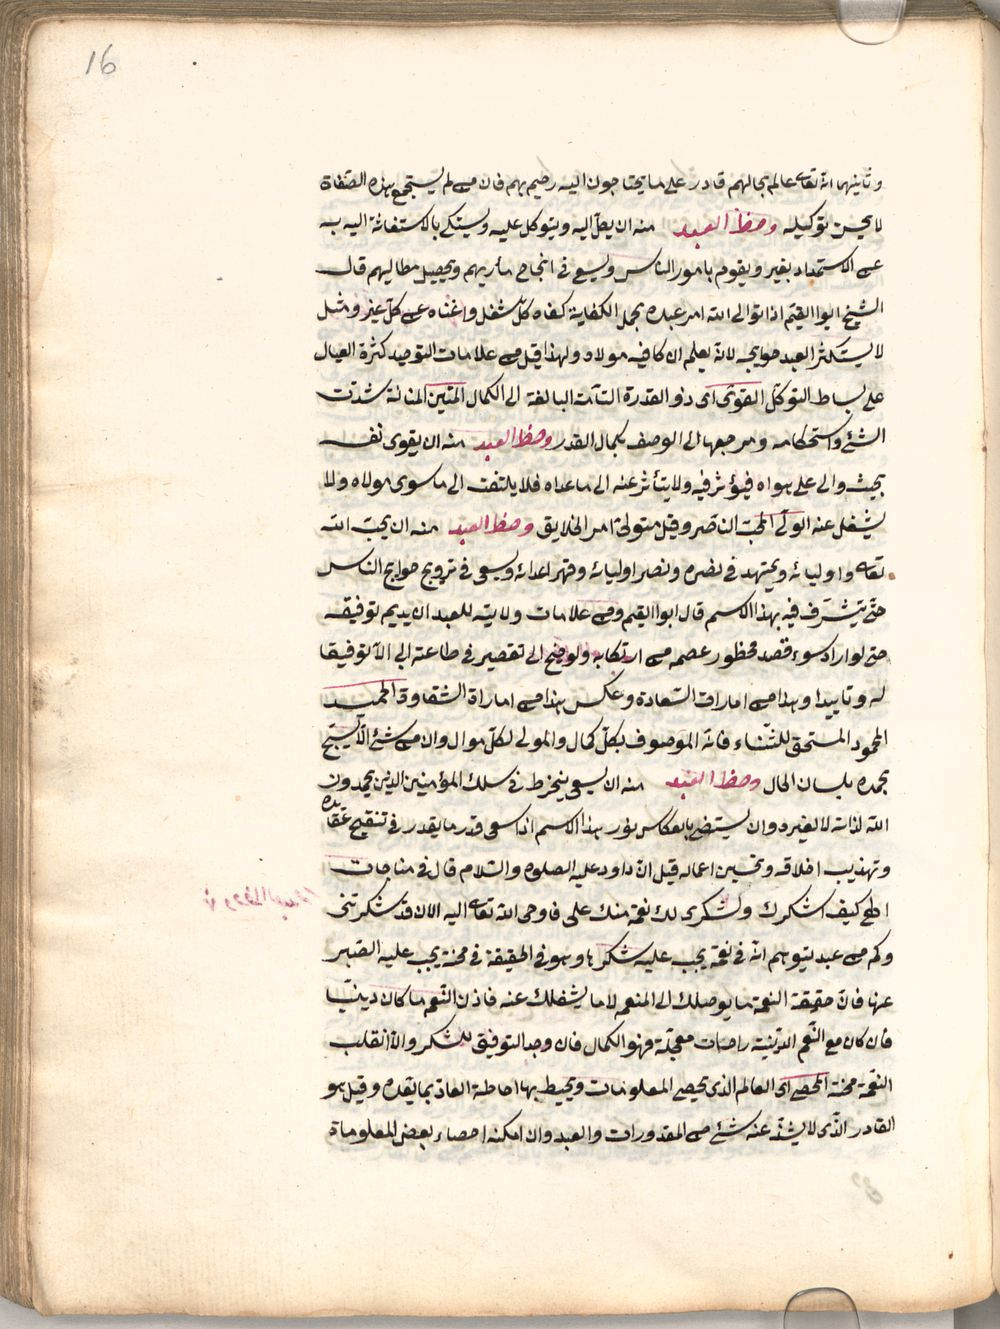 16
وثانيهما انه تعالى عالم بحالهم قادر على ما يحتاجون اليه رحيم بهم فان من لم يستجمع هذه الصفاة
لا يحسن توكيله وحظ العبد منه ان يكل اليه ويتوكل عليه ويستكفي بالاستغاثة اليه به
عن الاستمداد بغيره ويقوم بامور الناس ويسعى في انجاح مآربهم وتحصيل مطالبهم قال
الشيخ ابوا القيم اذا تولى الله امر عبده بجمل الكفاية كفاه كل شغل واغناه عن كل غير ومثل
لا يستكثر العبد حوايجه لانه يعلم ان كافيه مولاه ولهذا قيل من علامات التوحيد كثرة العيال
على بساط التوكل القوى اى ذو القدرة التامة البالغة الى الكمال المتين المتانة شدت
الشئ واستحكامه ومرجعها الى الوصف بكمال القدر وحظ العبد منه ان يقوى نف
بحيث والى على هواه فيؤثر فيه ولا يتأثر عنه الى ما عداه فلا يلتفت الى ما سوى مولاه ولا
يشغل عنه الولي المحب الناصر وقيل متولى امر الخلايق وحظ العبد منه ان يحب الله
تعالى واوليائه ويجتهد في نصره ونصر اوليائه وقهر اعدائه ويسعى في ترويج حوايج الناس
حتى يتشرف فيه بهذا الاسم قال ابوا القيم ومن علامات ولايته للعبد ان يديم توفيقه
حتى لو اراد سوء قصد محظور عصمه من ارتكابه ولو جنح الى تقصير في طاعته ابى الا توفيقا
له وتاييدا وهذا من امارات السعادة وعكس هذا من اماراة الشقاوة الحميد
المحمود المستحق للثناء فانه الموصوف بكل كمال والمولى لكل موال وان من شئ الا يسبح
بحمده بلسان الحال وحظ العبد منه ان يسعى ينخرط في سلك المؤمنين الذين يحمدون
الله لذاته لا لغيره وان يستضيء بانعكاس نور هذا الاسم اذا سعى قدر ما يقدر في تنقيح عقايده
وتهذيب اخلاقه وتحسين اعماله قيل ان داود عليه الصلوه والسلام قال في مناجات
الهي كيف اشكرك وشكرى لك نعمة منك على فاوحى الله تعالى اليه الان قد شكرتنى
وكم من عبد يتوهم انه في نعمة يجب عليه شكرها وهو في الحقيقة في محنة يجب عليه الصبر
عنها فان حقيقة النعمة ما يوصلك الى المنعم لا ما يشغلك عنه فاذن النعم ما كان دينيا
فان كان مع النعم الدينية راحات معجلة فهو الكمال فان وجد التوفيق للشكر والا انقلب
النعمة محنة المحصى اى العالم الذى يحصى المعلومات ويحيط بها احاطة العاد بما يعده وقيل هو
القادر الذى لا يشذ عنه شئ من المقدورات والعبد وان امكنه احصاء بعض المعلوماة